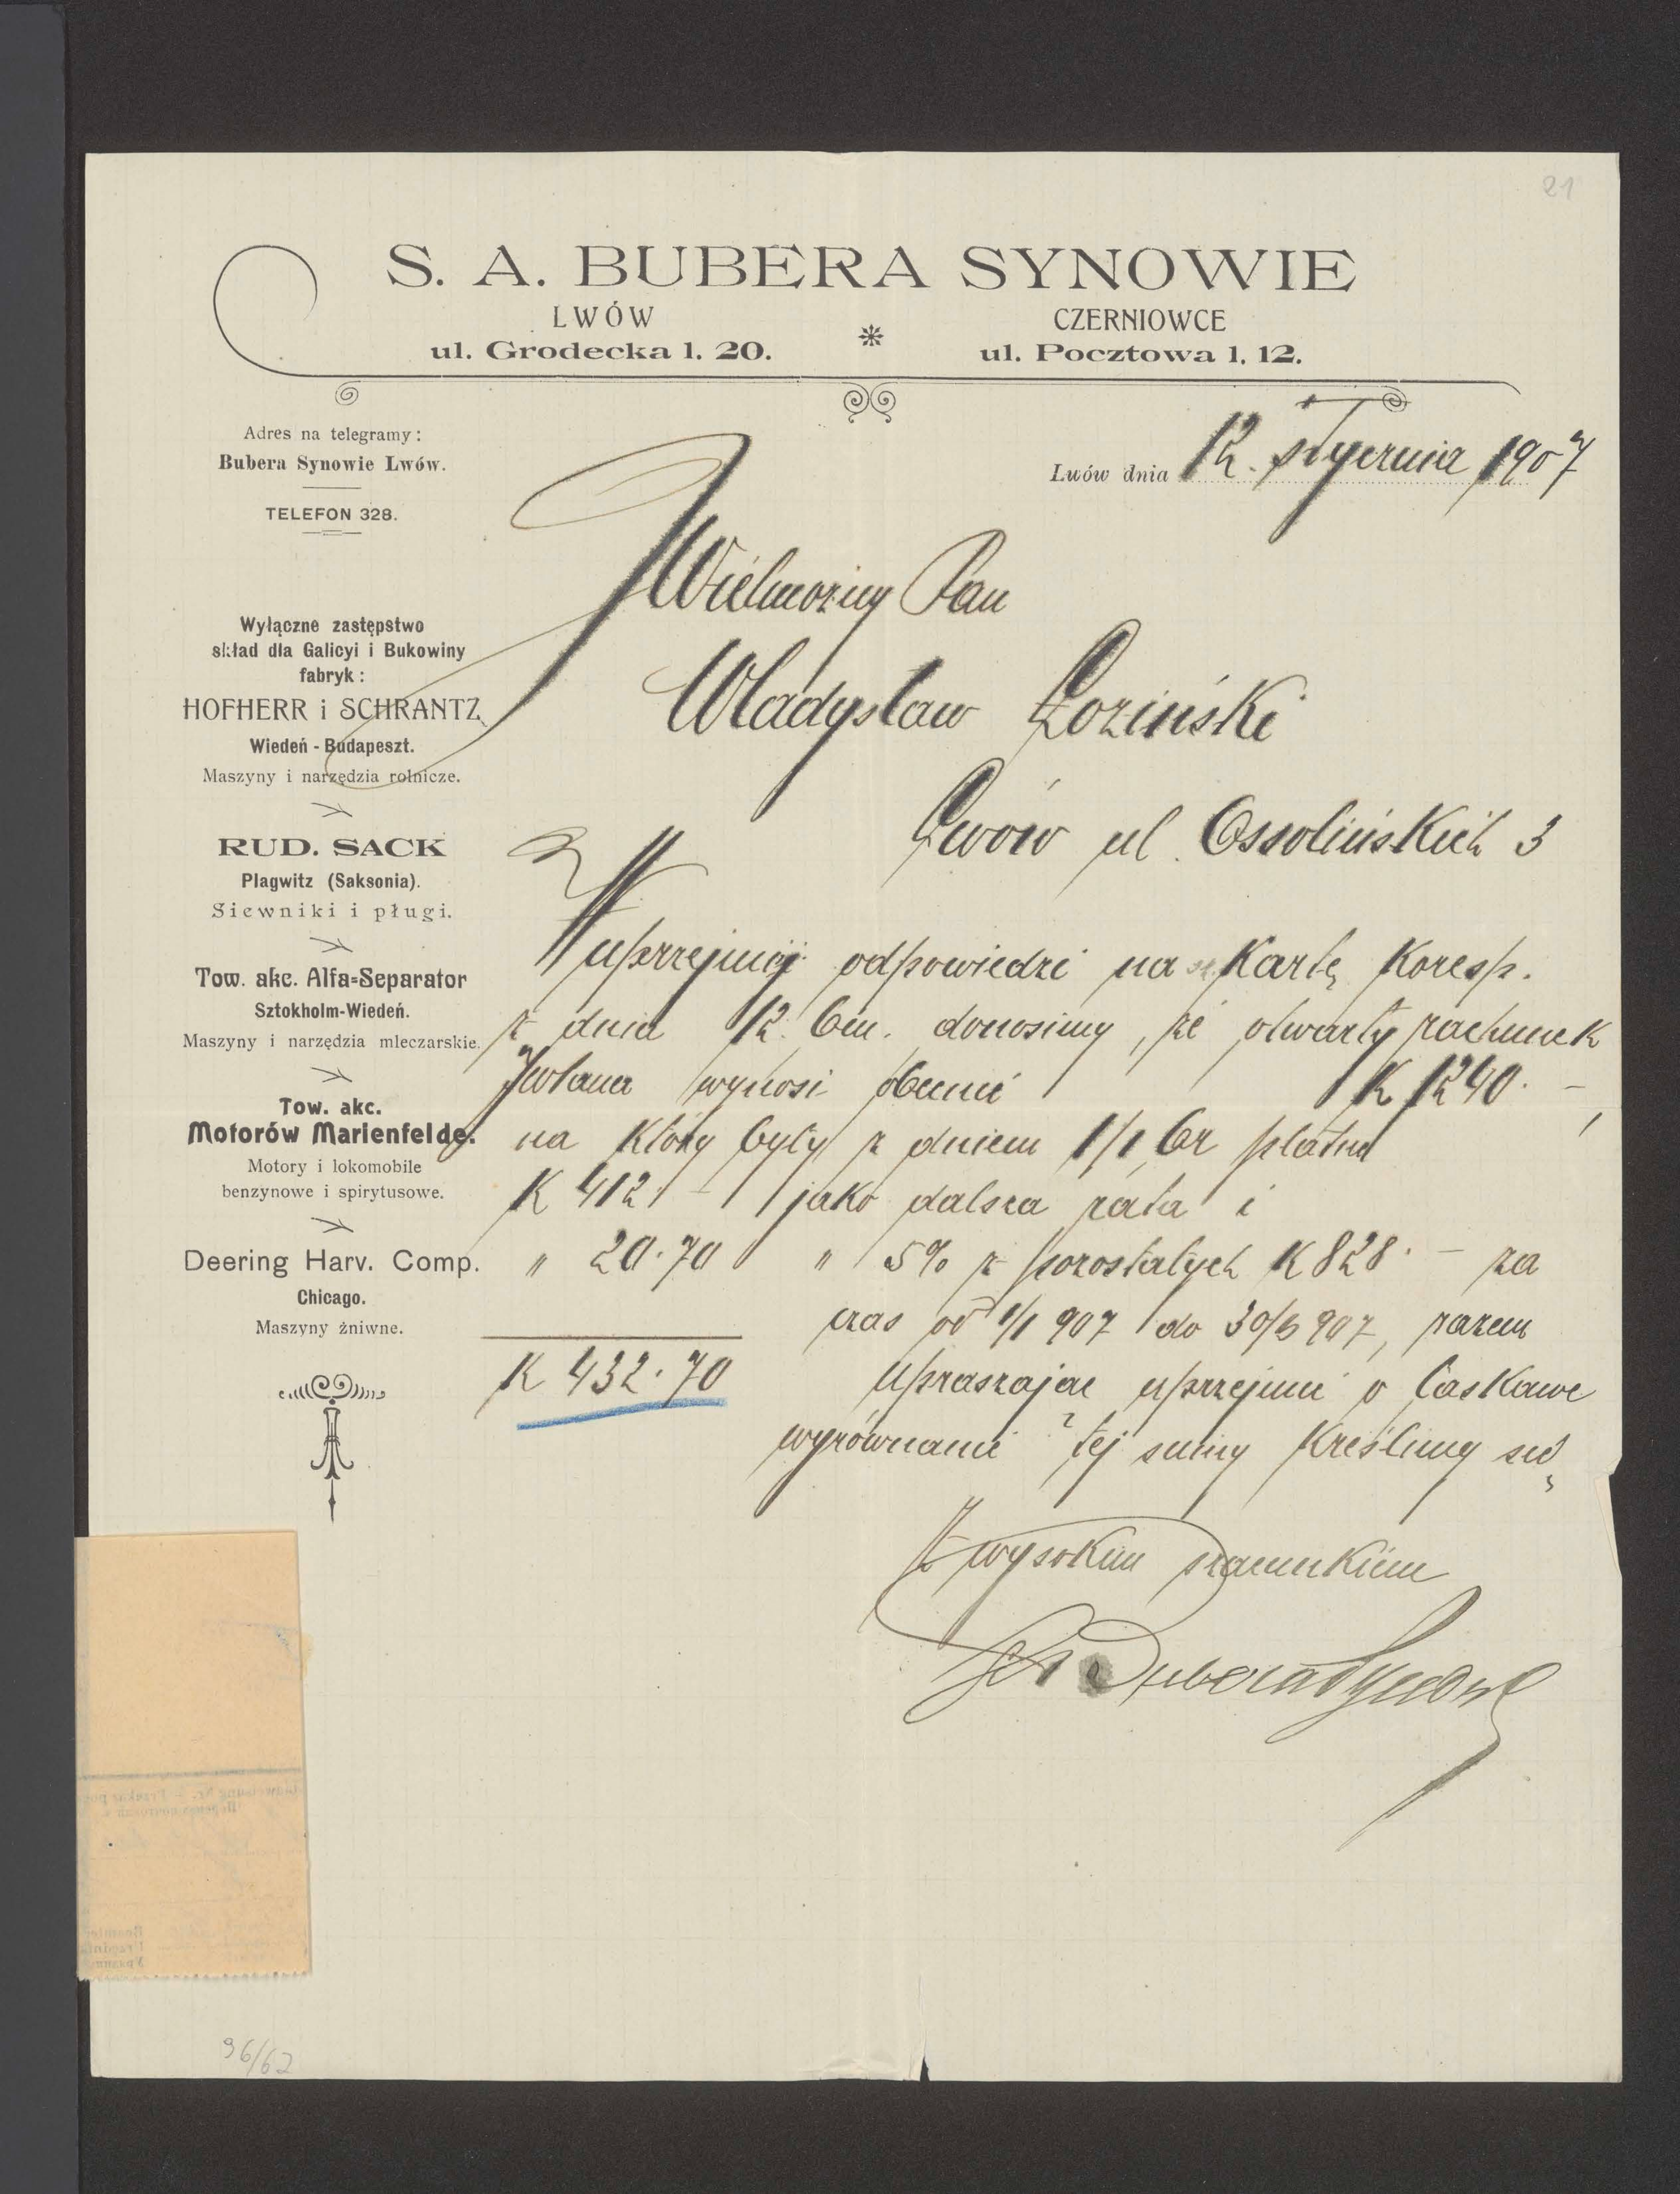 21
S. A. BUBERA SYNOWIE
LWÓW
ul. Grodecka l. 20.
CZERNIOWCE
ul. Pocztowa l. 12.
Adres na telegramy:
Bubera Synowie Lwów.
TELEFON 328.
Lwów dnia 12. stycznia 1907
Wyłączne zastępstwo
skład dla Galicyi i Bukowiny
fabryk:
HOFHERR i SCHRANTZ
Wiedeń - Budapeszt.
Maszyny i narzędzia rolnicze.
RUD. SACK
Plagwitz (Saksonia).
Siewniki i pługi.
Tow. akc. Alfa=Separator
Sztokholm-Wiedeń.
Maszyny i narzędzia mleczarskie.
Tow. akc.
Motorów Marienfelde.
Motory i lokomobile
benzynowe i spirytusowe.
Deering Harv. Comp.
Chicago.
Maszyny żniwne.
JWielmożny Pan
Władysław Łoziński
Lwów ul. Ossolińskich 3
W uprzejmej odpowiedzi na Kartę Koresp.
z dnia 12. bm. donosimy, że otwarty rachunek
JWPana wynosi obecnie K 1240.–
na który były z dniem 1/1 br płatne
K 412.– jako dalsza rata i
" 20.70 " 5% z pozostałych K 828.– za
czas od 1/1 907 do 30/6 907, razem
K 432.70 Upraszając uprzejmie o łaskawe
wyrównanie tej sumy Kreślimy się
Z wysokim szacunkiem
S A Bubera Synowie
96/62